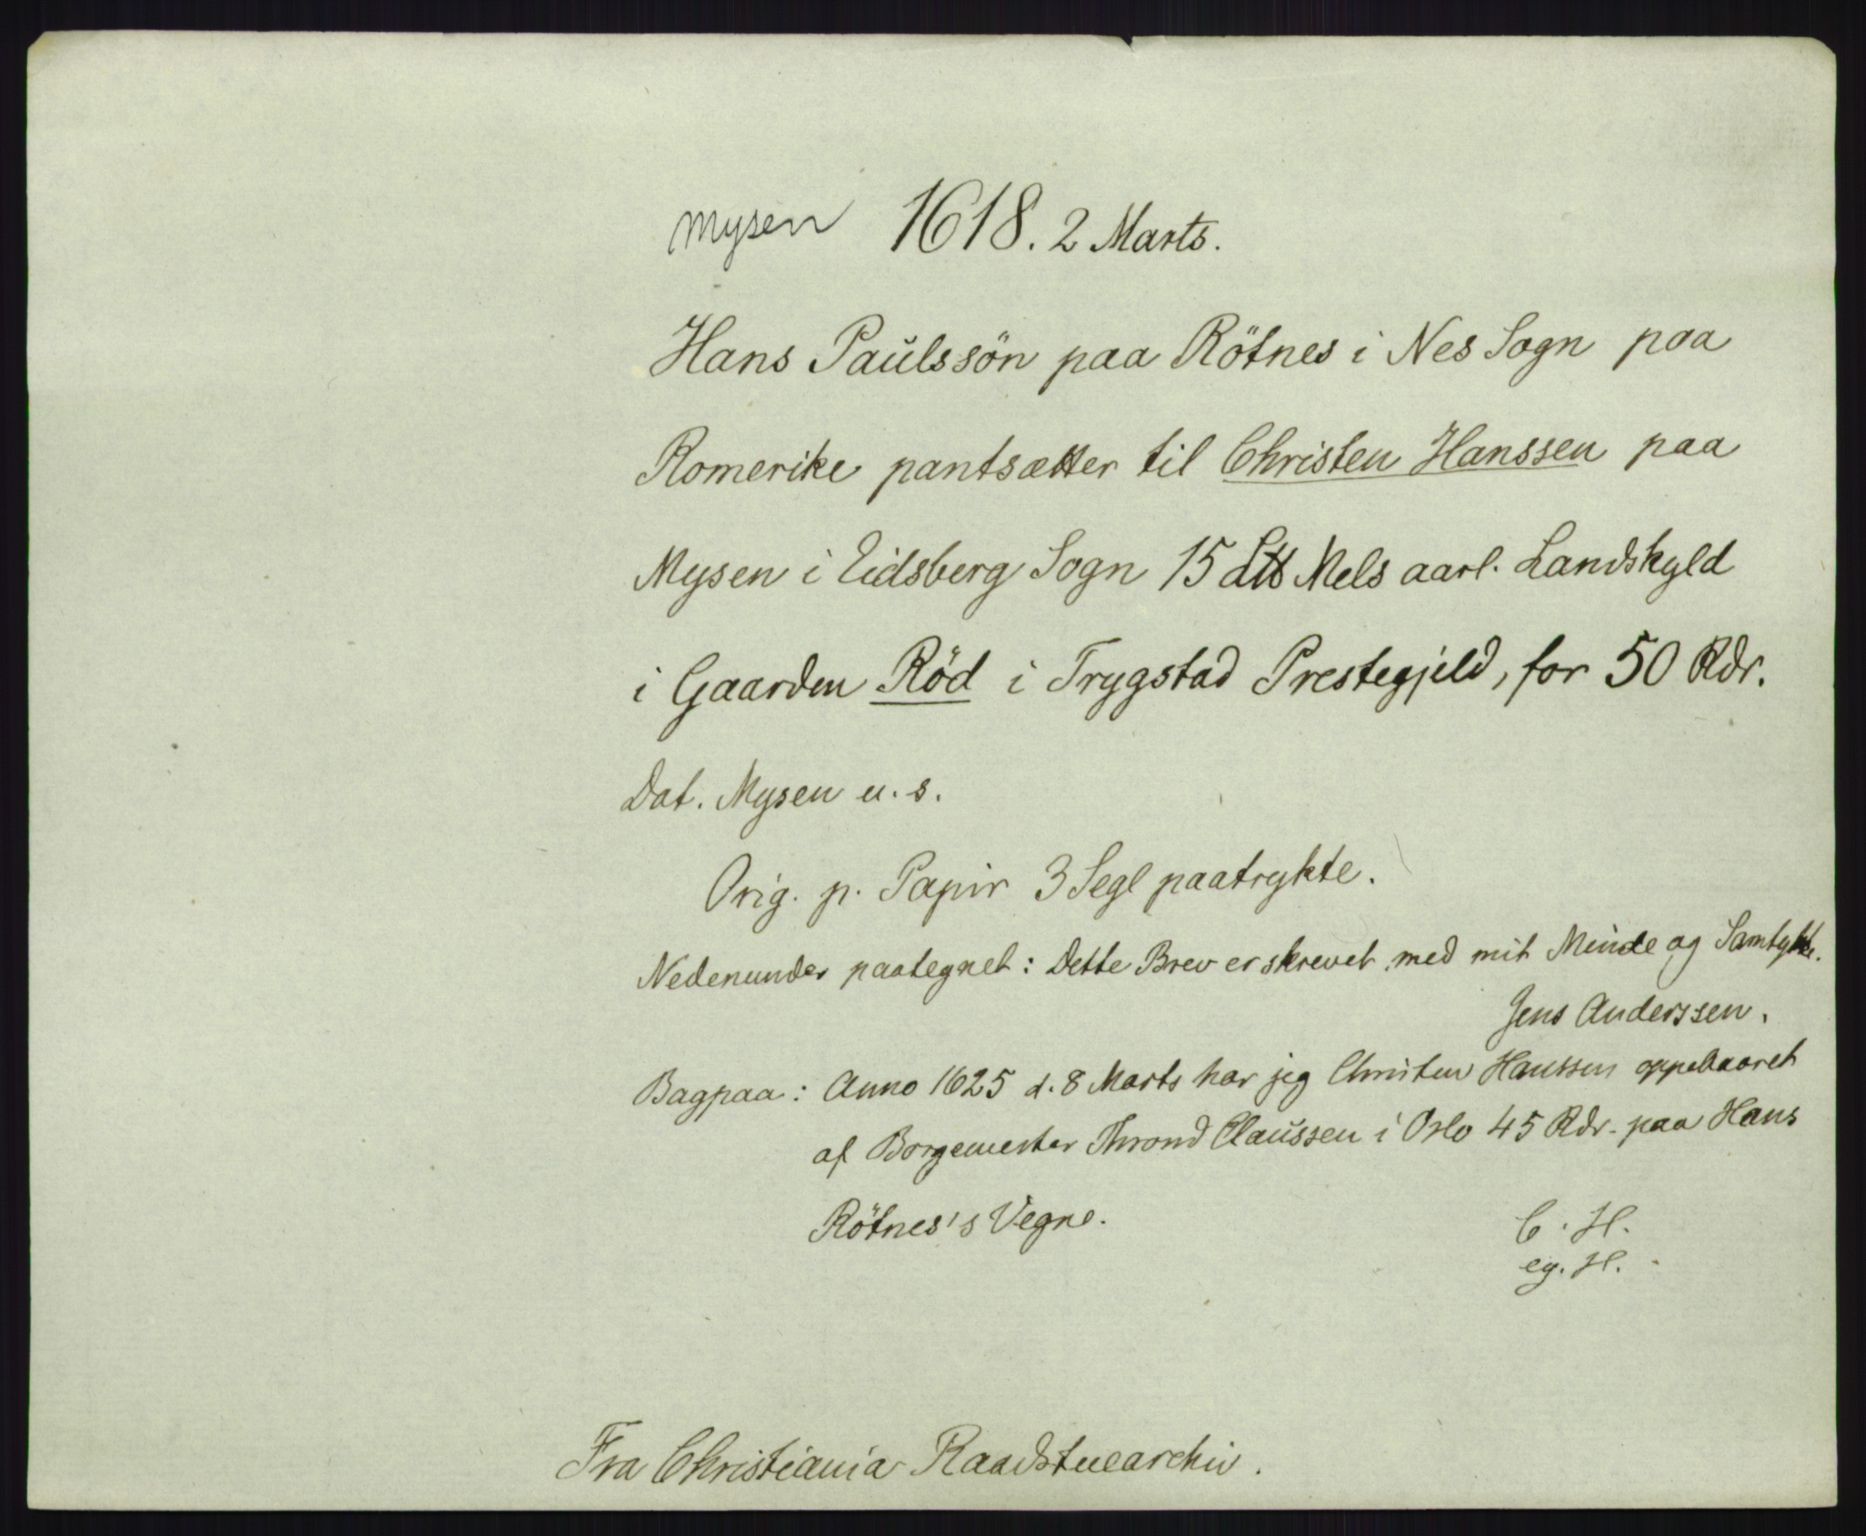 Mysen 1618. 2 Marts.
Hans Paulssön paa Rötnes i Nes Sogn paa
Romerike pantsætter til Christen Hanssen paa
Mysen i Eidsberg Sogn 15 L℔ Mels aarl. Landskyld
i Gaarden Röd i Trygstad Prestegjeld, for 50 Rdr.
Dat. Mysen u. s.
Orig. p. Papir 3 Segl paatrykte.
Nedenunder paategnet: Dette Brev er skrevet med mit Minde og Samtykke.
Jens Anderssen.
Bagpaa: Anno 1625 d. 8 Marts har jeg Christen Hanssen oppebaaret
af Borgemester Thrond Claussen i Oslo 45 Rdr. paa Hans
Rötnes's Vegne.
C. H.
eg. H.
Fra Christiania Raadstuearchiv.